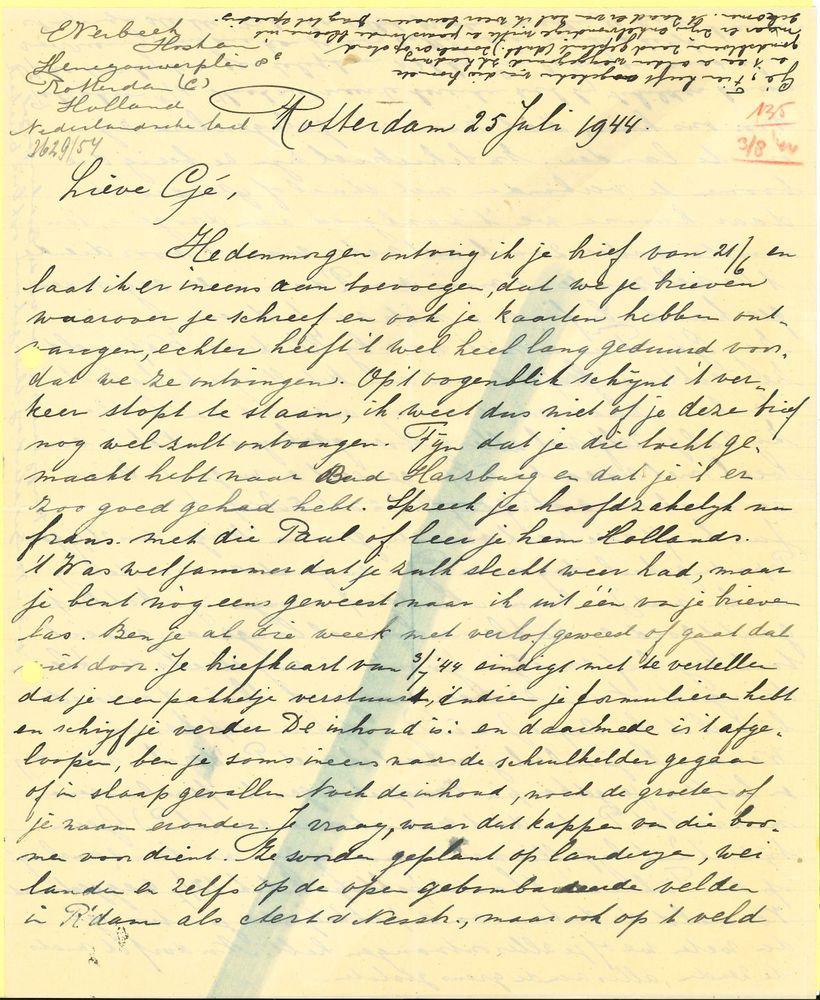 E Verbeek
Henegouwerplein 8
Rotterdam (C)
Holland
Nederlandsche taal
3629/54
135
3/8 '44
Rotterdam 25 Juli 1944.
Lieve Gé,
Hedenmorgen ontving ik je brief van 21/ en
laat ik er ineens aan toevoegen, dat we je brieven
waarover je schreef en ook je kaarten hebben ont-
vangen, echter heeft 't wel heel lang geduurd voor-
dat we ze ontvingen. Op't oogenblik schijnt 't ver-
keer stopt te staan, ik weet dus niet of je deze brief
nog wel zult ontvangen. Fijn dat je die tocht ge-
maakt hebt naar Bad Harzburg en dat je 't er
zoo goed gehad hebt. Spreek je hoofdzakelijk nu
frans. met die Paul of leer je hem Hollands.
't Was wel jammer dat je zulk slecht weer had, maar
je bent nog eens geweest naar ik uit één van je brieven
las. Ben je al die week met verlof geweest of gaat dat
niet door. Je briefkaart van 3/7 '44 eindigt met te vertellen
dat je een pakketje verstuurt, indien je formulieren hebt
en schrijf je verder De inhoud is: en daarmede is 't afge-
loopen, ben je soms ineens naar de schuilkelder gegaan
of in slaap gevallen Noch de inhoud, noch de groeten of
je naam eronder. Je vraag, waar dat kappen van die boo-
men voor dient. Ze worden geplant op landerijen, wei
landen en zelfs op de open gebombardeerde velden
in R'dam als Aert v Nesstr., maar ook op 't veld